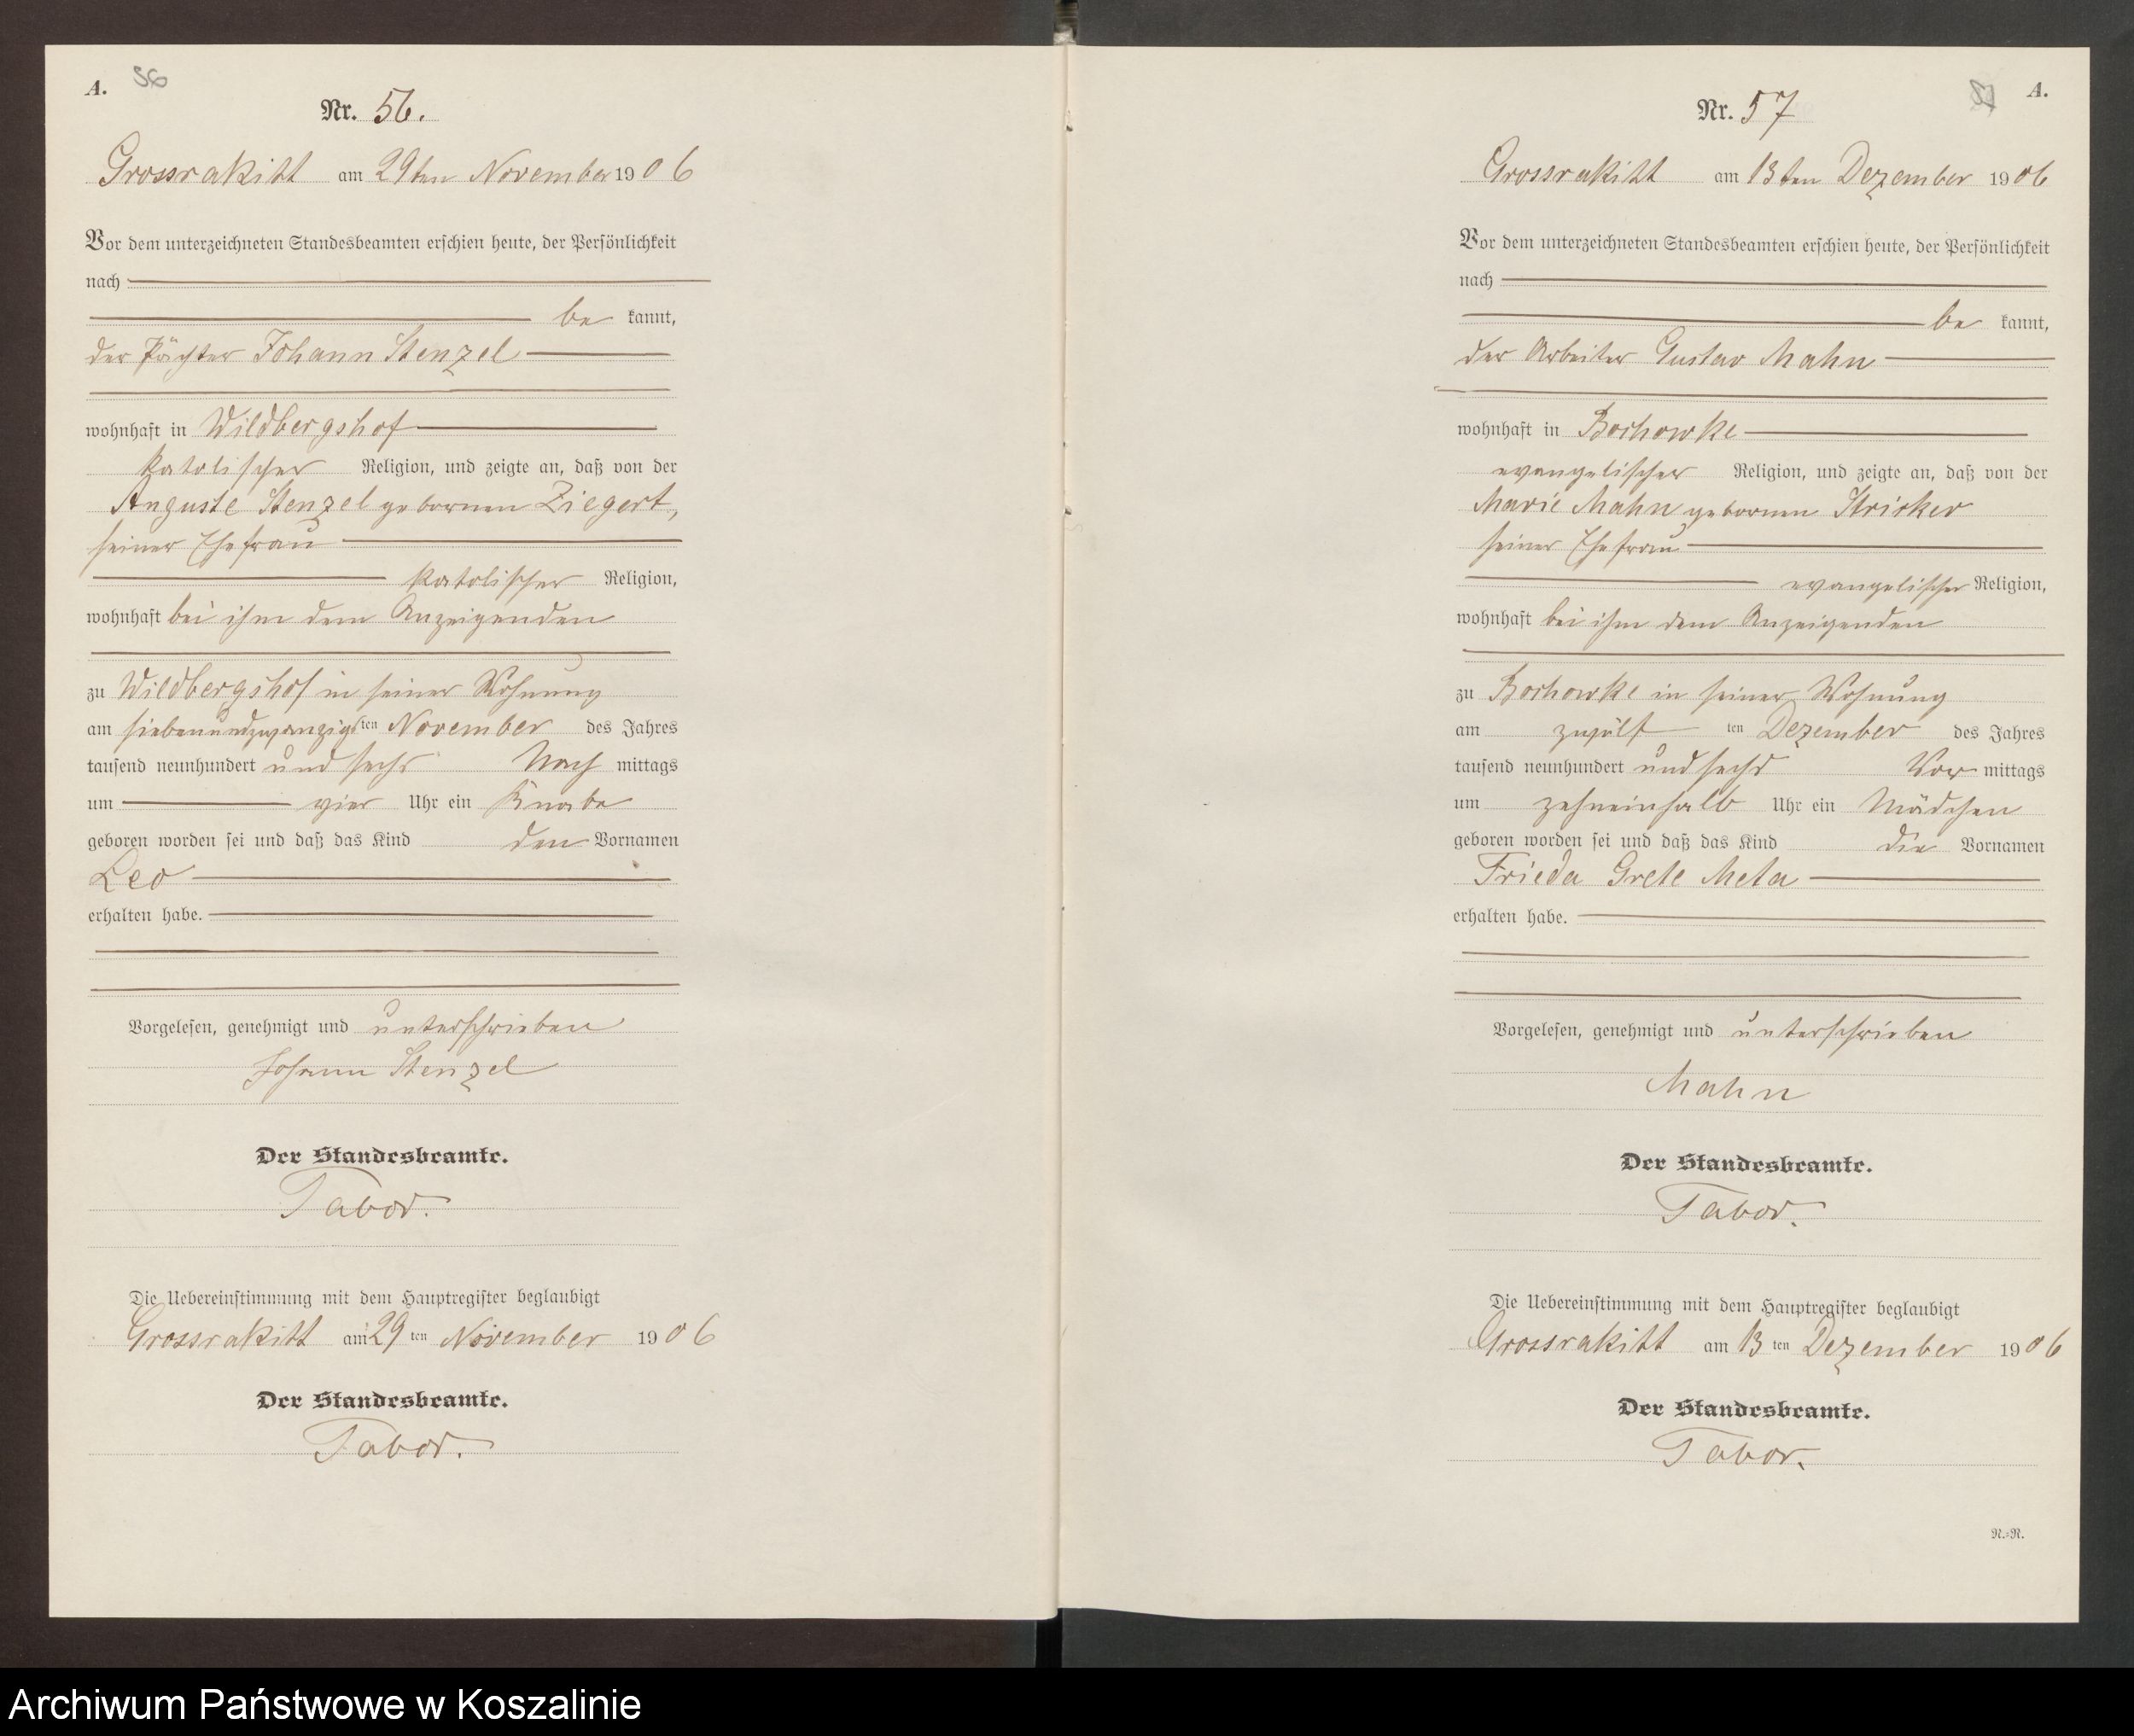 A. 56
Nr. 56.
Grossrakitt am 29ten November 1906
Vor dem unterzeichneten Standesbeamten erschien heute, der Persönlichkeit
nach
be kannt,
der Pächter Johann Stenzel
wohnhaft in Wildbergshof
katolischer Religion, und zeigte an, daß von der
Auguste Stenzel gebornen Ziegert,
seiner Ehefrau
katolischer Religion,
wohnhaft bei ihm dem Anzeigenden
zu Wildbergshof in seiner Wohnung
am siebenundzwanzigsten November des Jahres
tausend neunhundert und sechs Nach mittags
um vier Uhr ein Knabe
geboren worden sei und daß das Kind den Vornamen
Leo
erhalten habe.
Vorgelesen, genehmigt und unterschrieben
Johann Stenzel
Der Standesbeamte.
Tabor.
Die Uebereinstimmung mit dem Hauptregister beglaubigt
Grossrakitt am 29 ten November 1906
Der Standesbeamte.
Tabor.
57 A.
Nr. 57
Grossrakitt am 13ten Dezember 1906
Vor dem unterzeichneten Standesbeamten erschien heute, der Persönlichkeit
nach
be kannt,
der Arbeiter Gustav Mahn
wohnhaft in Bochowke
evangelischer Religion, und zeigte an, daß von der
Marie Mahn gebornen Stricker
seiner Ehefrau
evangelischer Religion,
wohnhaft bei ihm dem Anzeigenden
zu Bochowke in seiner Wohnung
am zwölf ten Dezember des Jahres
tausend neunhundert und sechs Vor mittags
um zehneinhalb Uhr ein Mädchen
geboren worden sei und daß das Kind die Vornamen
Frieda Grete Meta
erhalten habe.
Vorgelesen, genehmigt und unterschrieben
Mahn
Der Standesbeamte.
Tabor.
Die Uebereinstimmung mit dem Hauptregister beglaubigt
Grossrakitt am 13 ten Dezember 1906
Der Standesbeamte.
Tabor.
N.=R.
Archiwum Państwowe w Koszalinie